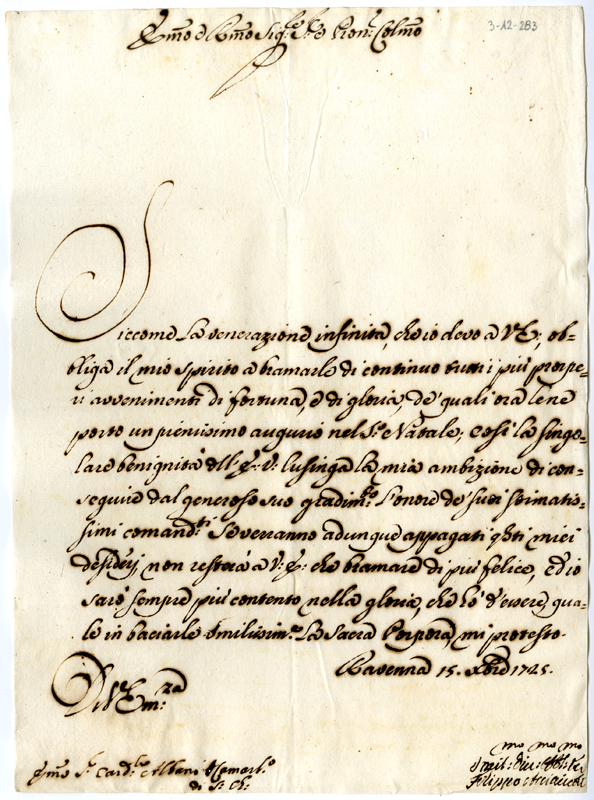 3-12-283
Emo e Rmo Sig.re Sig.re e Pron. Colmo
Siccome la venerazione infinita, che io devo a V.E., ob=
bliga il mio spirito a bramarle di continuo tutti i più prospe=
ri avvenimenti di fortuna, e di gloria, de' quali ora le ne
porto un pienissimo augurio nel S.to Natale; così la singo=
lare benignità dell' E. V. lusinga la mia ambizione di con=
seguire dal generoso suo gradim.to l'onore de' suoi stimatis=
simi comand.ti Se verranno adunque appagati q.sti miei
desiderj, non resterà a V. E. che bramare di più felice, ed io
sarò sempre più contento nella gloria, che hò d'essere, qua=
le in baciarle umilissim.te la Sacra Porpora, mi protesto.
Ravenna 15. Xbre 1725.
Di V. Em.za
Emo S.r Card.le Albani Camarl.o
di S. Ch.
mo mo mo
Filippo